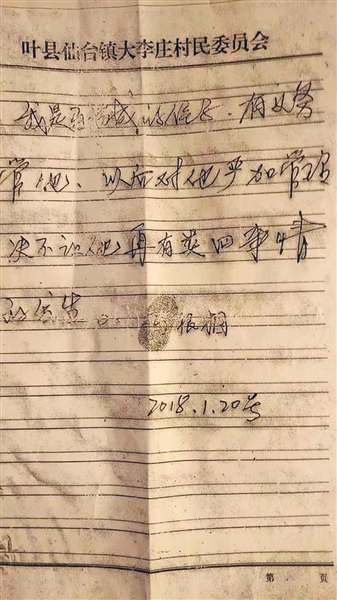 叶县仙台镇大李庄村民委员会
我是王 成的保长.有义务
管他、以后对他严加管理
决不让他再有类四事情
发生
银娟
2018.1.20号
第 页